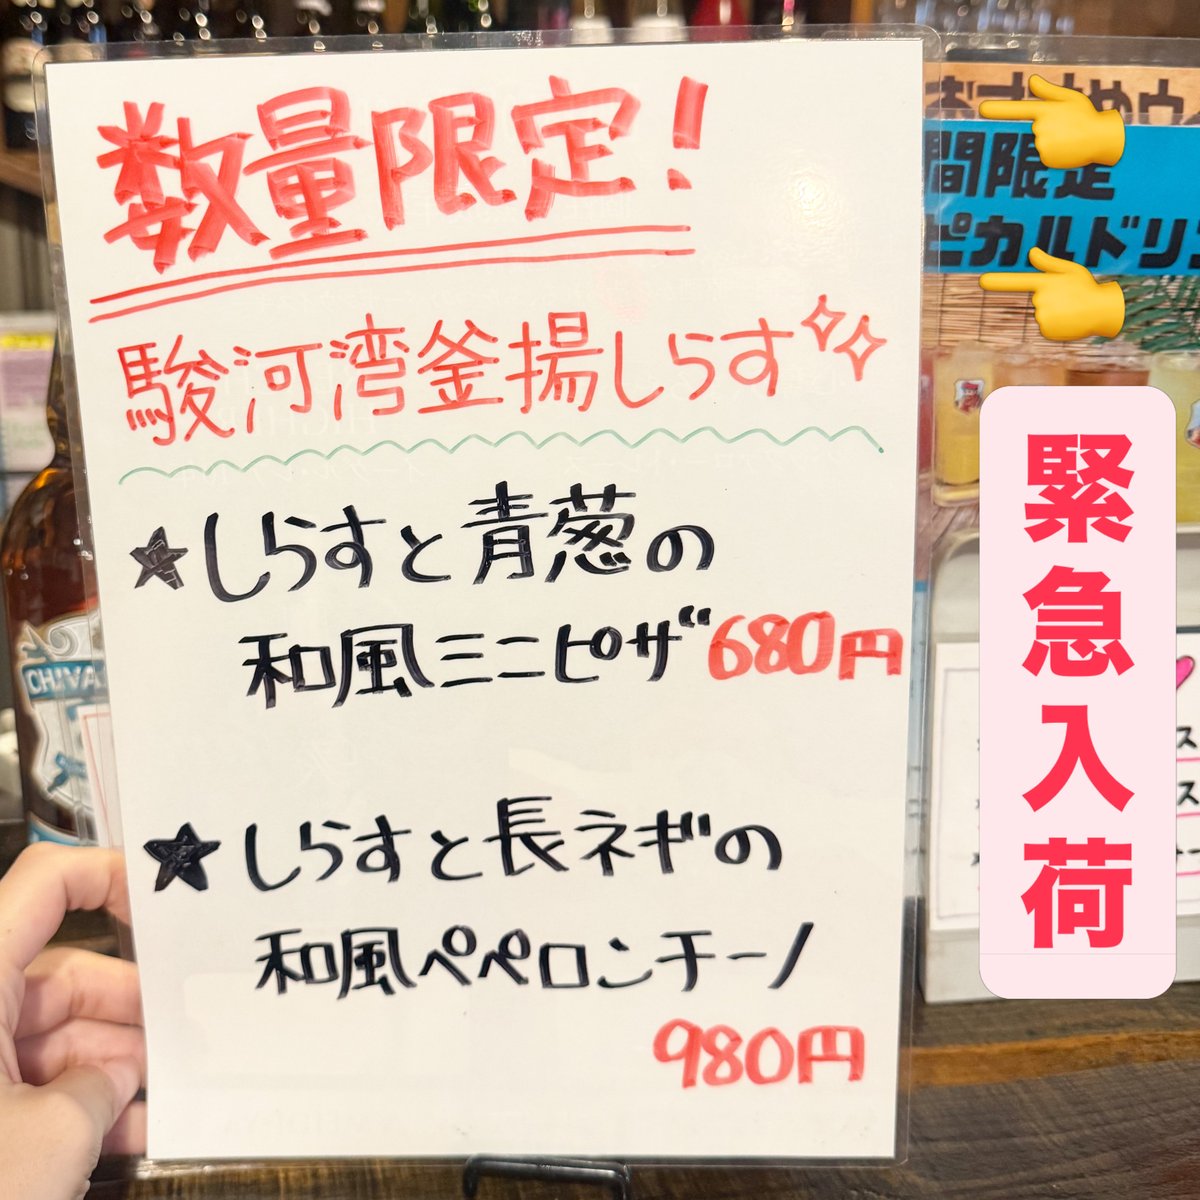 数量限定！
駿河湾釜揚しらす
★しらすと青葱の
和風ミニピザ 680円
★しらすと長ネギの
和風ペペロンチーノ
980円
間限定
ピカルドリン
緊急入荷
CHIVA